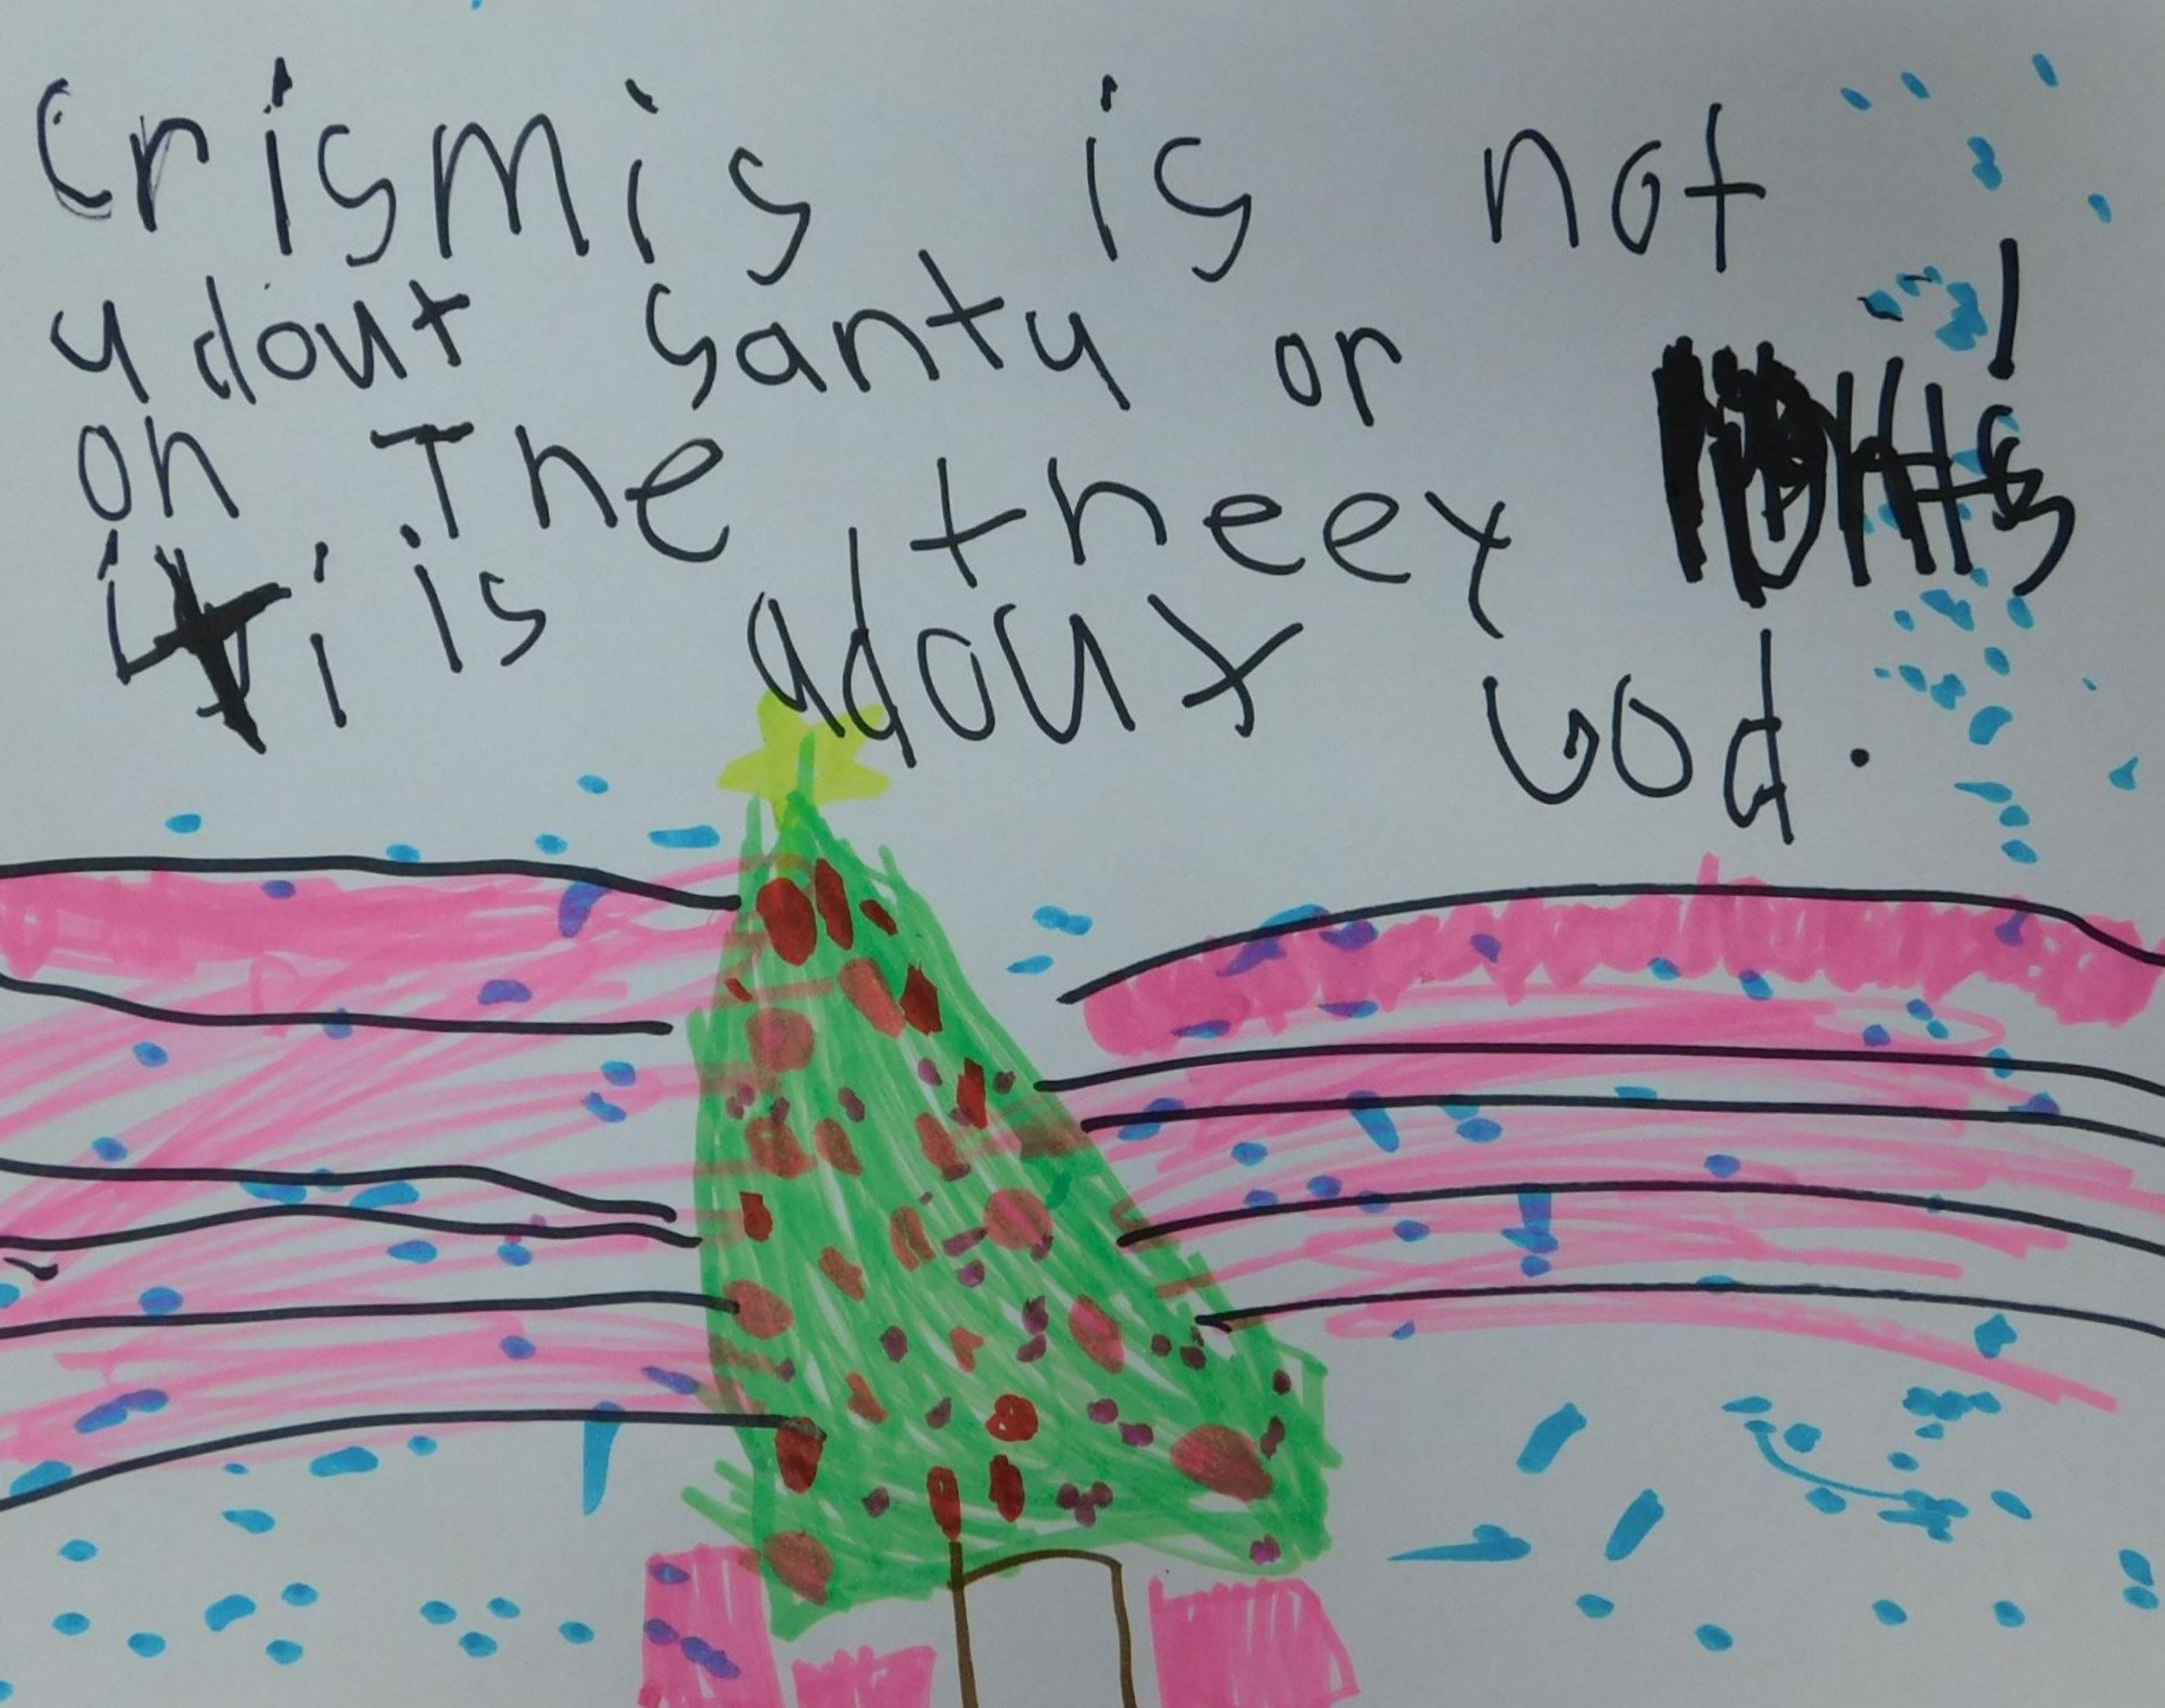 crismis is not
ydout santy or
on The theey
it i is adout God.